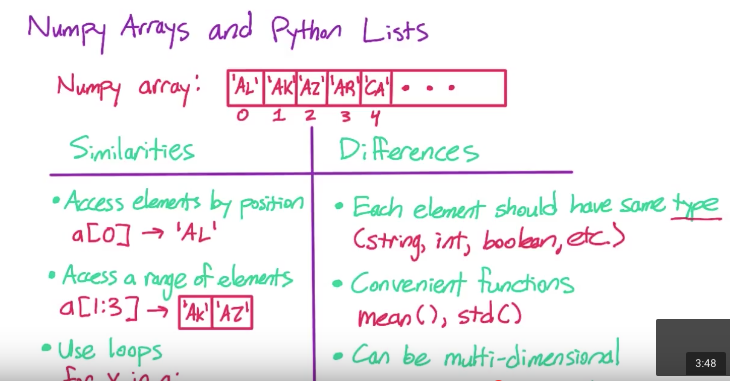 Numpy Arrays and Python Lists
Numpy array: 'AL' 'AK' 'AZ' 'AR' 'CA' • • •
0 1 2 3 4
Similarities
• Access elements by position
a[0] → 'AL'
• Access a range of elements
a[1:3] → 'AK' 'AZ'
• Use loops
for x in a:
Differences
• Each element should have same type
(string, int, boolean, etc.)
• Convenient functions
mean(), std()
• Can be multi-dimensional
3:48